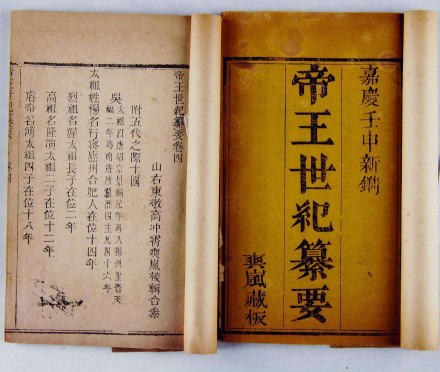 嘉慶壬申新鐫
帝王世紀纂要
爽嵐藏板
帝王世紀纂要卷四
山右東敬高冲霄爽嵐裝輯合參
附五代之際十國
吳
太祖姓楊名行密廬州合肥人在位十四年
烈祖名渥太祖長子在位二年
高祖名隆演太祖二子在位十二年
睿帝名溥太祖四子在位十八年